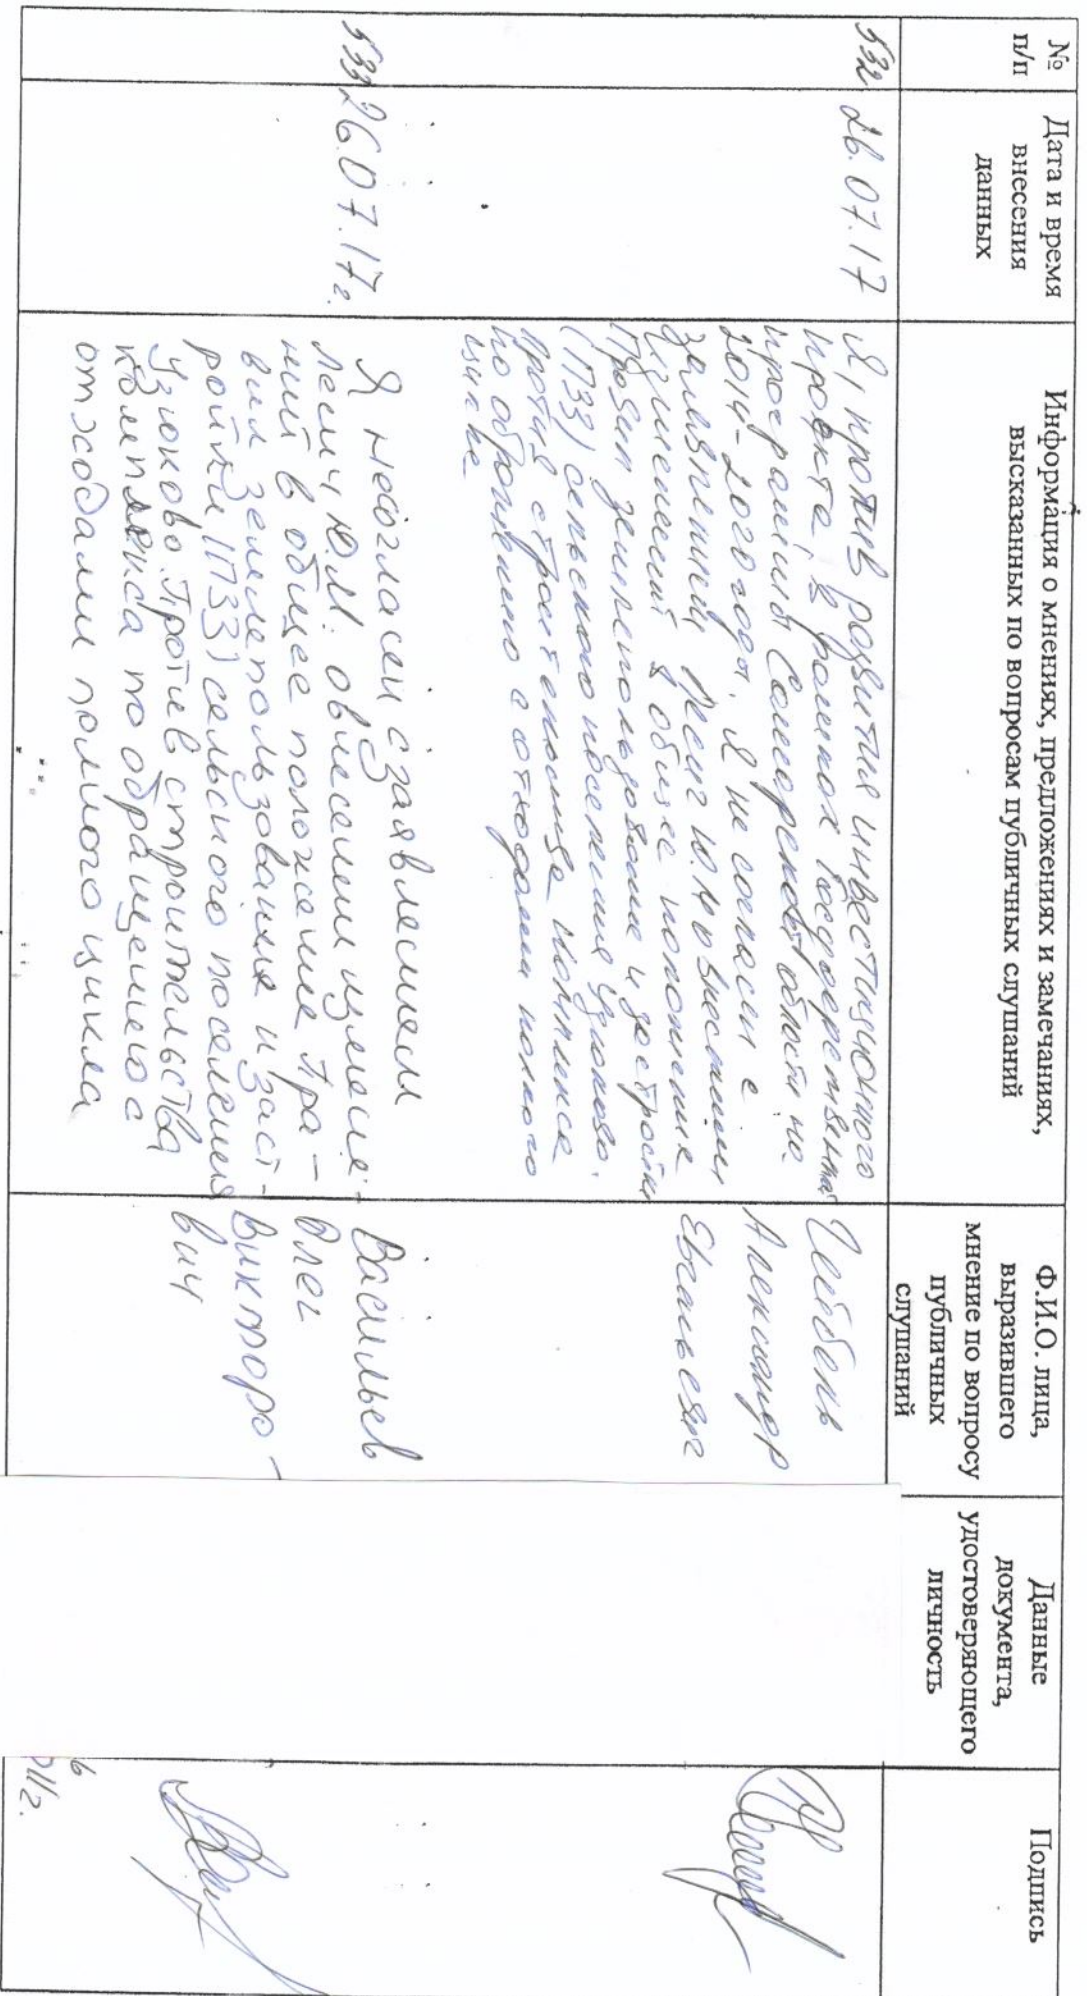 №
п/п
Дата и время
внесения
данных
Информация о мнениях, предложениях и замечаниях,
высказанных по вопросам публичных слушаний
Ф.И.О. лица,
выразившего
мнение по вопросу
публичных
слушаний
Данные
документа,
удостоверяющего
личность
Подпись
532
26.07.17
Я, против развития инвестиционного
проекта, в рамках государственной
программы Самарской области на
2014-2020 годы. Я не согласен с
заявлением Лесич Ю.М. о внесении
изменений в общее положение
Правил землепользования и застройки
(ПЗЗ) сельского поселения Узюково.
Против строительства комплекса
по обращению с отходами полного
цикла
Александр
Евгеньевич
533
26.07.17г.
Я несогласен с заявлением
Лесич Ю.М. о внесении измене-
ний в общее положение Пра-
вил землепользования и заст-
ройки (ПЗЗ) сельского поселения
Узюково. Против строительства
комплекса по обращению с
отходами полного цикла
Васильев
Олег
Викторо-
вич